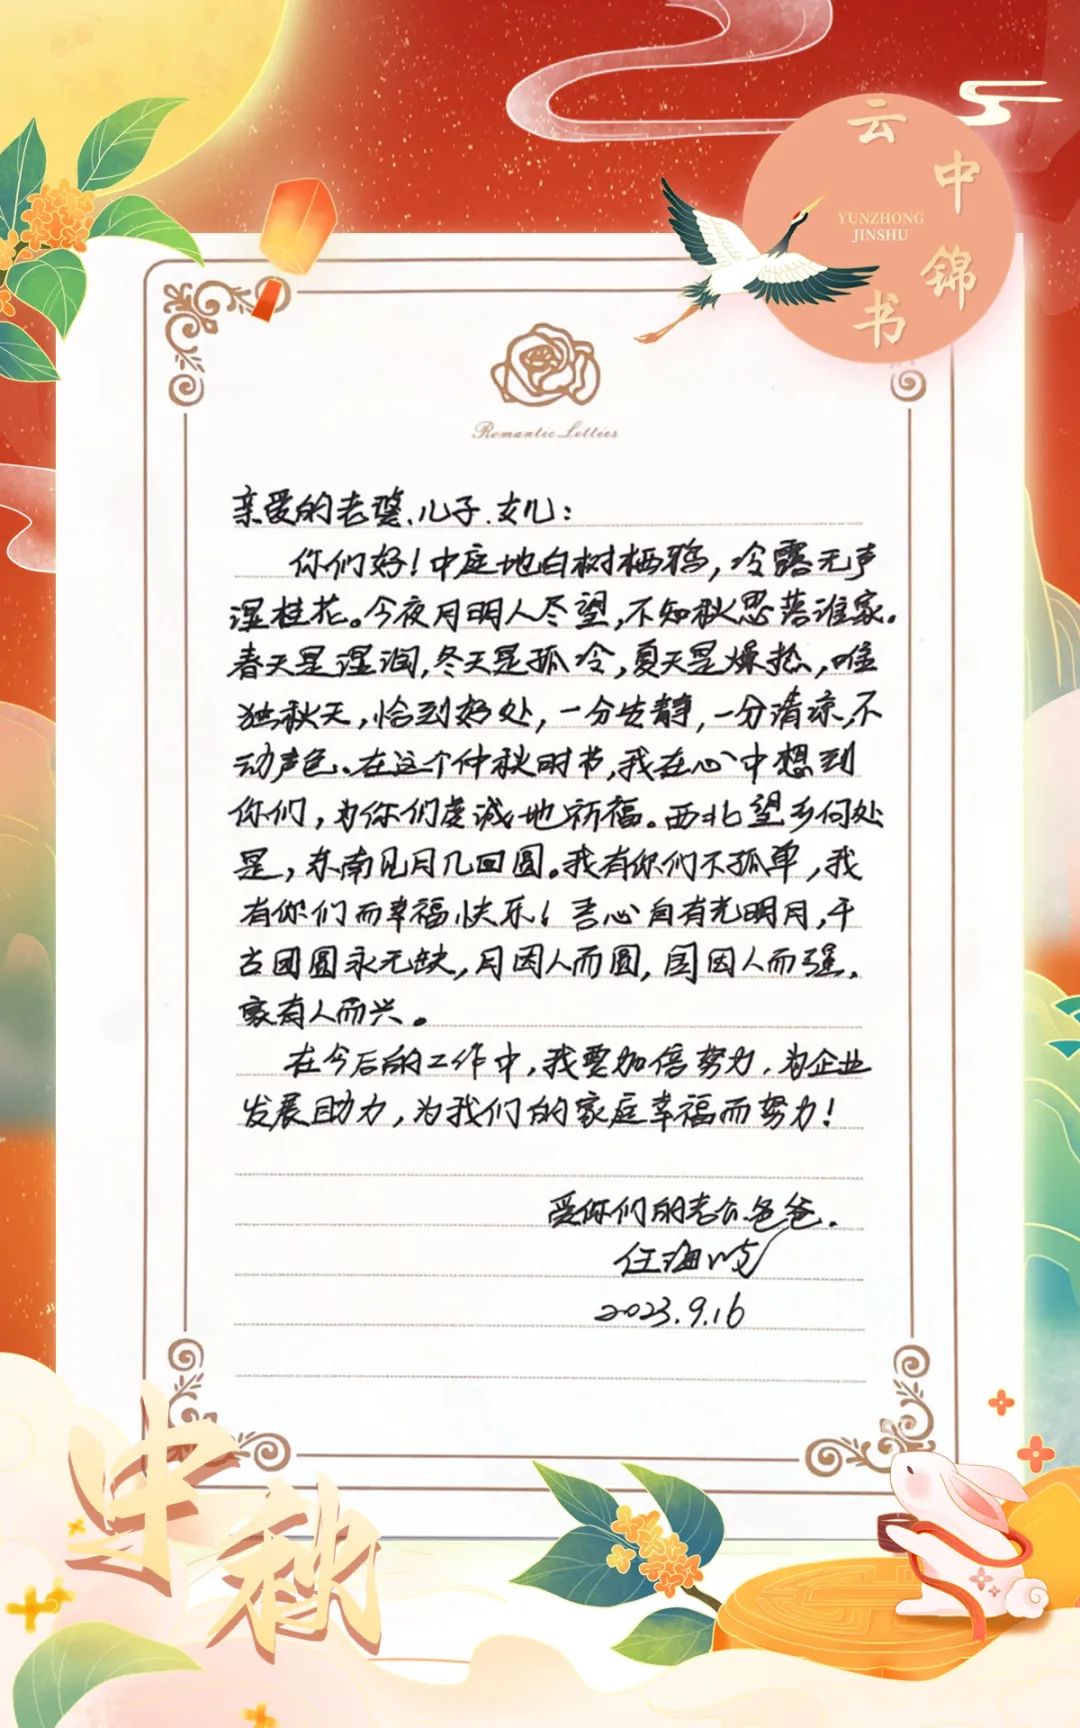 云中锦书
YUNZHONG
JINSHU
Romantic Letties
亲爱的老婆、儿子、女儿：
你们好！中庭地白树栖鸦，冷露无声
湿桂花。今夜月明人尽望，不知秋思落谁家。
春天是湿润，冬天是孤冷，夏天是燥热，唯
独秋天，恰到好处，一分安静，一分清凉，不
动声色、在这个仲秋时节，我在心中想到
你们，为你们虔诚地祈福。西北望乡何处
是，东南见月几回圆。我有你们不孤单，我
有你们而幸福快乐！吾心自有光明月，千
古团圆永无缺，月因人而圆，国因人而强，
家有人而兴。
在今后的工作中，我要加倍努力，为企业
发展助力，为我们的家庭幸福而努力！
爱你们的老公、爸爸.
任海
2023.9.16
中秋